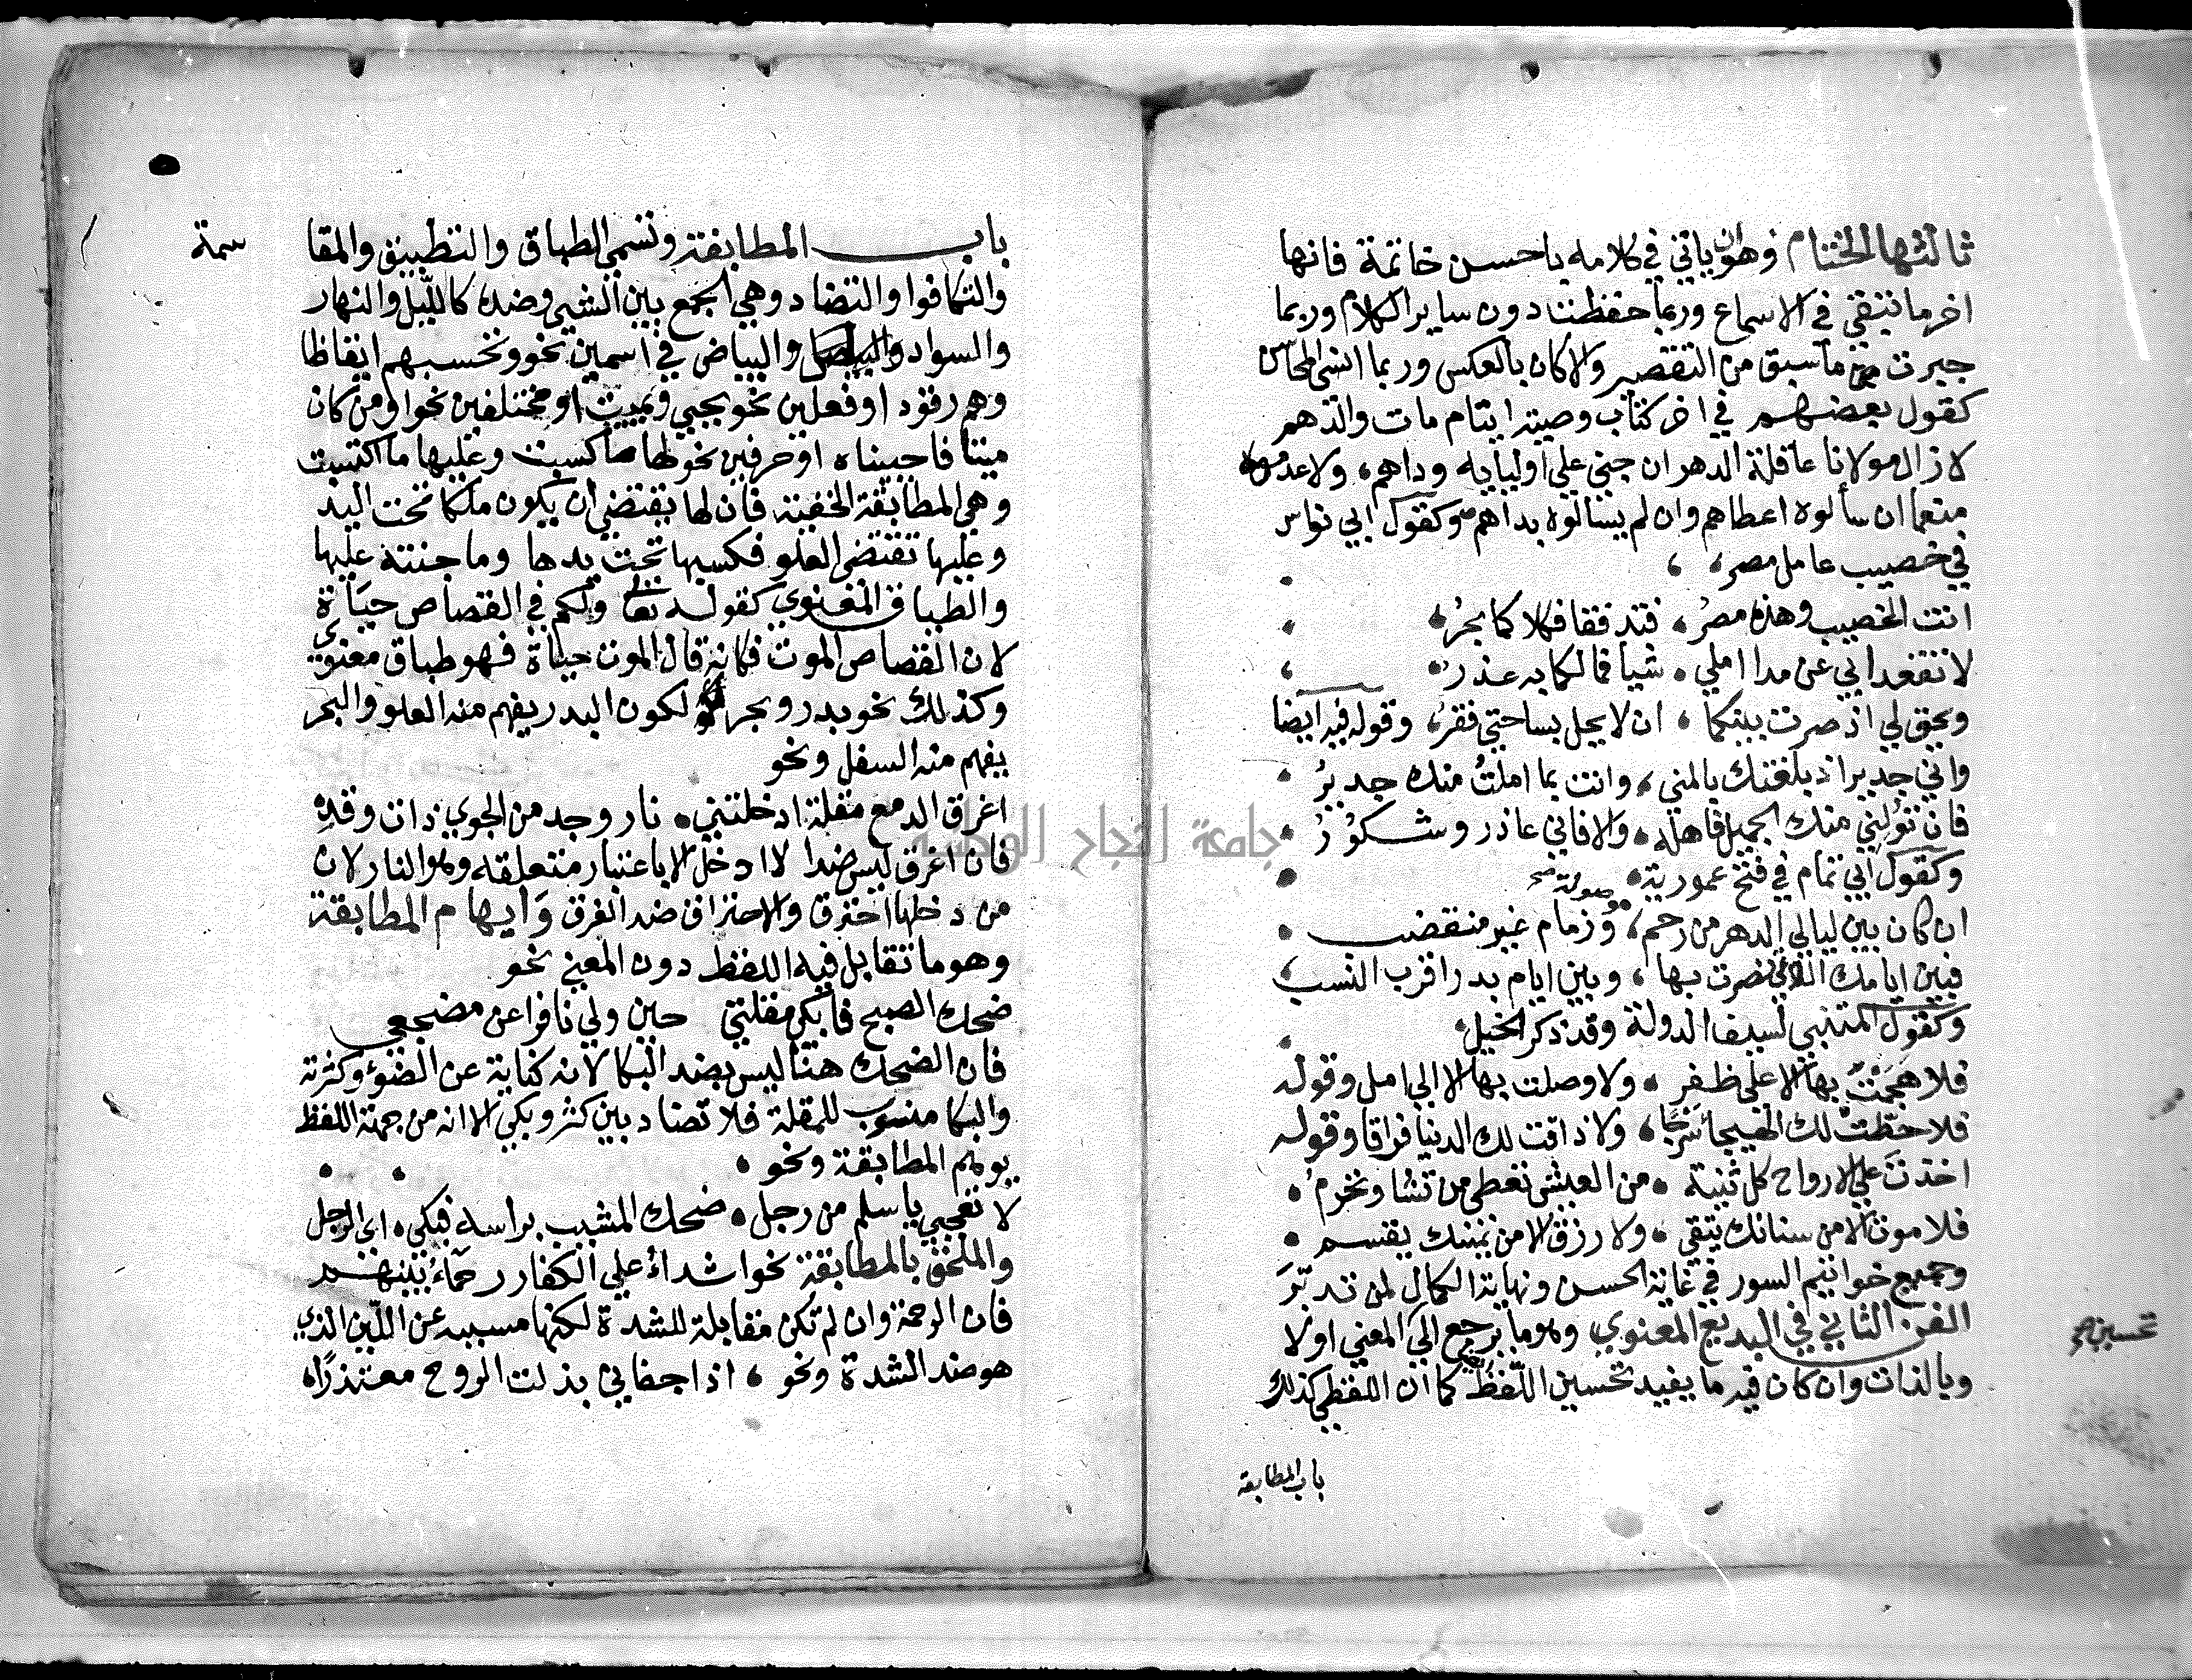 ثالثها الختام وهو ان ياتي في كلامه باحسن خاتمة فانها
اخر ما تبقي في الاسماع وربما حفظت دون ساير الكلام وربما
جبرت ما سبق من التقصير والا كان بالعكس وربما انسي المحاسن
كقول بعضهم في اخر كتاب وصية ايتام مات والدهم
لا زال مولانا عاقلة الدهر ان جني علي اوليايه وداهم، ولا عدموه
منعما ان سالوه اعطاهم وان لم يسالوه بداهم وكقول ابي نواس
في خصيب عامل مصر،
انت الخصيب وهذه مصر، فتدفقا فكلاكما بحر
لا تقعدا بي عن مدا املي، شيا فما لكما به عذر
ويحق لي اذ صرت بينكما، ان لا يحل بساحتي فقر، وقوله فيه ايضا
واني جدير اذ بلغتك بالمني، وانت بما املت منك جدير
فان تولني منك الجميل فاهله، والا فاني عاذر وشكور
وكقول ابي تمام في فتح عمورية
ان كان بين ليالي الدهر من رحم، وزمام غير منقضب
موصولة صح
فبين ايامك اللاتي نصرت بها، وبين ايام بدر اقرب النسب
وكقول المتنبي لسيف الدولة وقد ذكر الخيل
فلا هجمت بها الا علي ظفر، ولا وصلت بها الا الي امل وقوله
فلا حطت لك الهيجا سرجا، ولا ذاقت لك الدنيا فراقا وقوله
اخذت علي الارواح كل ثنية، من العيش تعطي من تشا وتحرم
فلا موت الا من سنانك يتقي، ولا رزق الا من يمينك يقسم
وجميع خواتيم السور في غاية الحسن ونهاية الكمال لمن تدبر
الفن الثاني في البديع المعنوي وهو ما يرجع الي المعني اولا
تحسين
وبالذات وان كان فيه ما يفيد تحسين اللفظ كما ان اللفظي كذلك
باب المطابقة
باب المطابقة وتسمي الطباق والتطبيق والمقا
سمة
والتكافوا والتضاد وهي الجمع بين الشي وضده كالليل والنهار
والسواد والبياض في اسمين نحو وتحسبهم ايقاظا
وهم رقود او فعلين نحو يحيي ويميت او مختلفين نحو او من كان
ميتا فاحييناه او حرفين نحو لها ما كسبت وعليها ما اكتسبت
وهي المطابقة الخفية فان لها يقتضي ان يكون ملكا تحت اليد
وعليها تقتضي العلو فكسبها تحت يدها وما جنته عليها
والطباق المعنوي كقوله تعالى ولكم في القصاص حياة
لان القصاص الموت فكانه قال الموت حياة فهو طباق معنوي
وكذلك نحو بدر وبحر لكون البدر يفهم منه العلو والبحر
يفهم منه السفل ونحو
اغرق الدمع مقلة ادخلتني، نار وجد من الجوي ذات وقد
فان اغرق ليس ضدا لا ادخل الا باعتبار متعلقه وهو النار لان
من دخلها احترق والاحتراق ضد الغرق وايهام المطابقة
وهو ما تقابل فيه اللفظ دون المعني نحو
ضحك الصبح فابكي مقلتي حين ولي نافرا عن مضجعي
فان الضحك هنا ليس بضد البكا لانه كناية عن الضوء وكثرته
والبكا منسوب للمقلة فلا تضاد بين كثر وبكي الا انه من جهة اللفظ
يوهم المطابقة ونحو
لا تعجبي يا سلم من رجل، ضحك المشيب براسه فبكي، اي الرجل
والملحق بالمطابقة نحو اشداء علي الكفار رحماء بينهم
فان الرحمة وان لم تكن مقابلة للشدة لكنها مسببه عن اللين الذي
هو ضد الشدة ونحو، اذا جفا بي بذلت الروح معتذرا
جامعة النجاح الوطنية